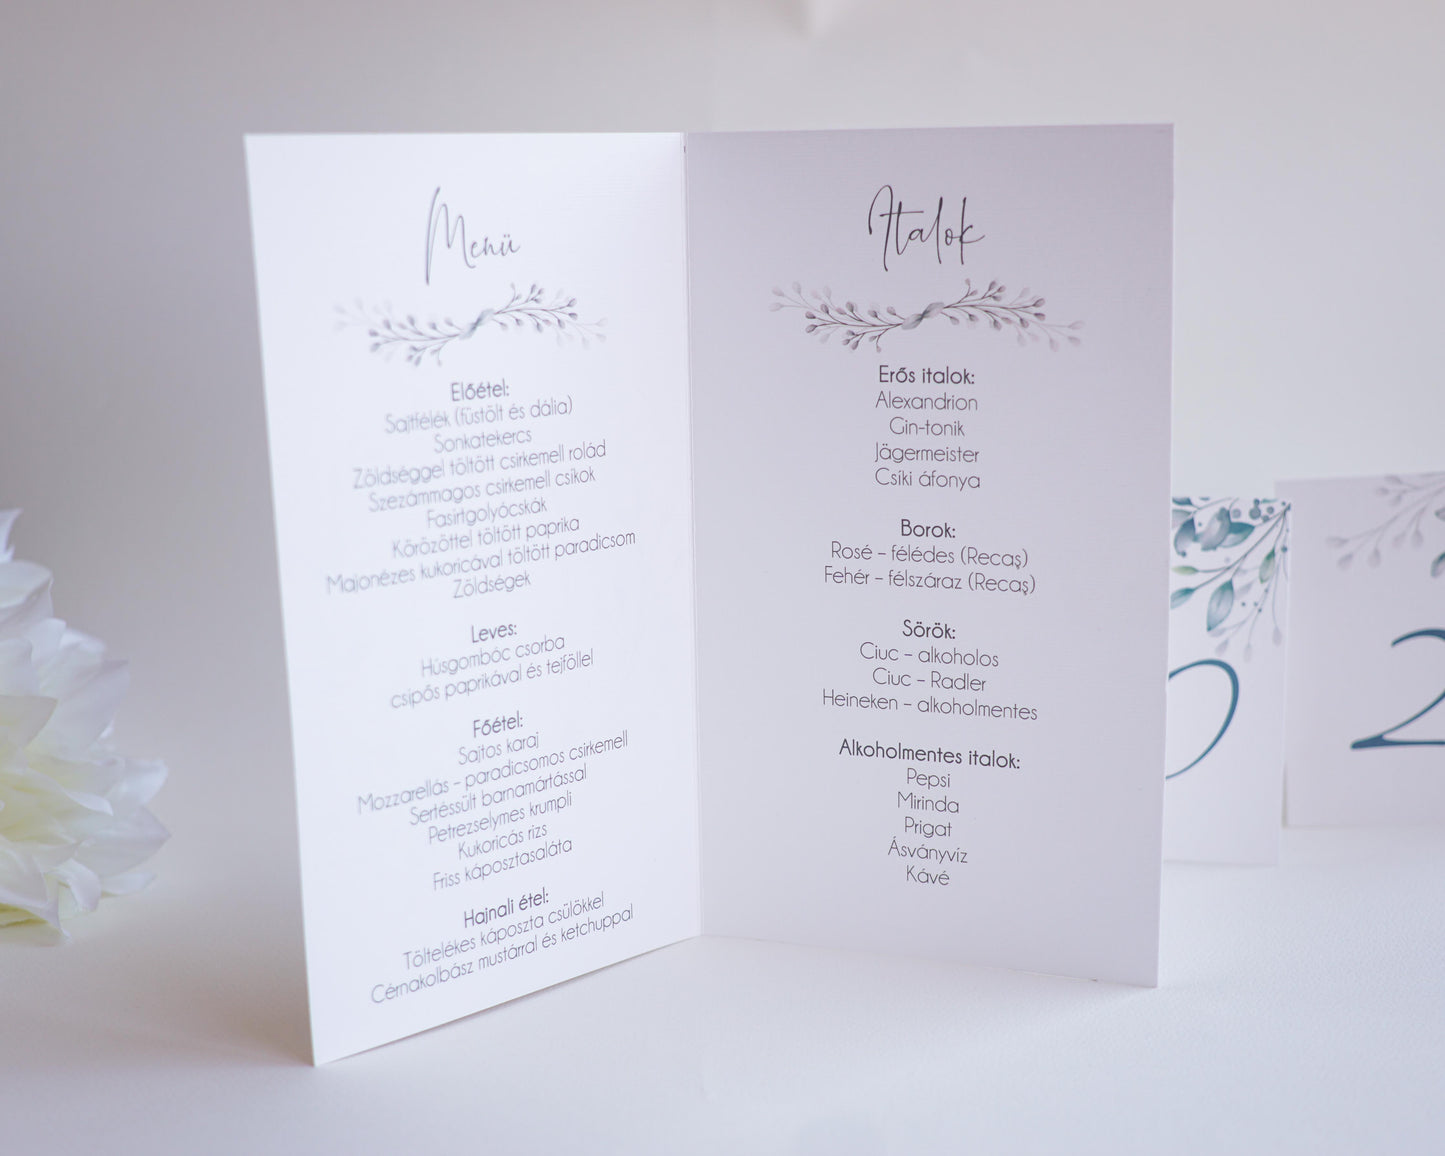 Menü
Előétel:
Sajtfélék (füstölt és dália)
Sonkatekercs
Zöldséggel töltött csirkemell rolád
Szezámmagos csirkemell csíkok
Fasírtgolyócskák
Körözöttel töltött paprika
Majonézes kukoricával töltött paradicsom
Zöldségek
Leves:
Húsgombóc csorba
csípős paprikával és tejföllel
Főétel:
Sajtos karaj
Mozzarellás - paradicsomos csirkemell
Sertéssült barnamártással
Petrezselymes krumpli
Kukoricás rizs
Friss káposztasaláta
Hajnali étel:
Töltelékes káposzta csülökkel
Cérnakolbász mustárral és ketchuppal
Italok
Erős italok:
Alexandrion
Gin-tonik
Jägermeister
Csíki áfonya
Borok:
Rosé - félédes (Recaş)
Fehér - félszáraz (Recaş)
Sörök:
Ciuc - alkoholos
Ciuc - Radler
Heineken - alkoholmentes
Alkoholmentes italok:
Pepsi
Mirinda
Prigat
Ásványvíz
Kávé
2